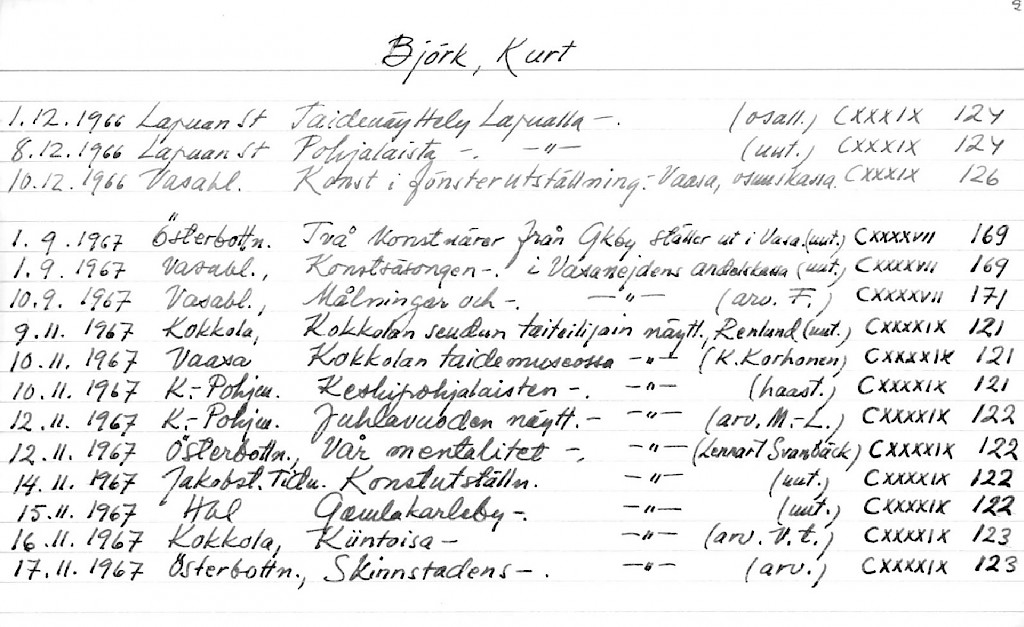 Björk, Kurt
1.12.1966 Lapuan St Taidenäyttely Lapualla -. (osall.) CXXXIX 124
8.12.1966 Lapuan St Pohjalaista -. -"- (uut.) CXXXIX 124
10.12.1966 Vasabl. Konst i fönsterutställning.- Vaasa, osuuskassa. CXXXIX 126
1.9.1967 Österbottn. Två konstnärer från Gkby ställer ut i Vasa. (uut.) CXXXXVII 169
1.9.1967 Vasabl., Konstsäsongen -. i Vasanejdens andelskassa (uut.) CXXXXVII 169
10.9.1967 Vasabl., Målningar och -. -"- (arv. F.) CXXXXVII 171
9.11.1967 Kokkola, Kokkolan seudun taiteilijain näytt., Renlund (uut.) CXXXXIX 121
10.11.1967 Vaasa Kokkolan taidemuseossa -"- (K. Korhonen) CXXXXIX 121
10.11.1967 K.-Pohjm. Keskipohjalaisten -. -"- (haast.) CXXXXIX 121
12.11.1967 K.-Pohjm. Juhlavuoden näytt.- -"- (arv. M.-L.) CXXXXIX 122
12.11.1967 Österbottn., Vår mentalitet -. -"- (Lennart Svanbäck) CXXXXIX 122
14.11.1967 Jakobst. Tidn. Konstutställn. -"- (uut.) CXXXXIX 122
15.11.1967 Hbl Gamlakarleby -. -"- (uut.) CXXXXIX 122
16.11.1967 Kokkola, Kiintoisa - -"- (arv. V.t.) CXXXXIX 123
17.11.1967 Österbottn., Skinnstadens -. -"- (arv.) CXXXXIX 123